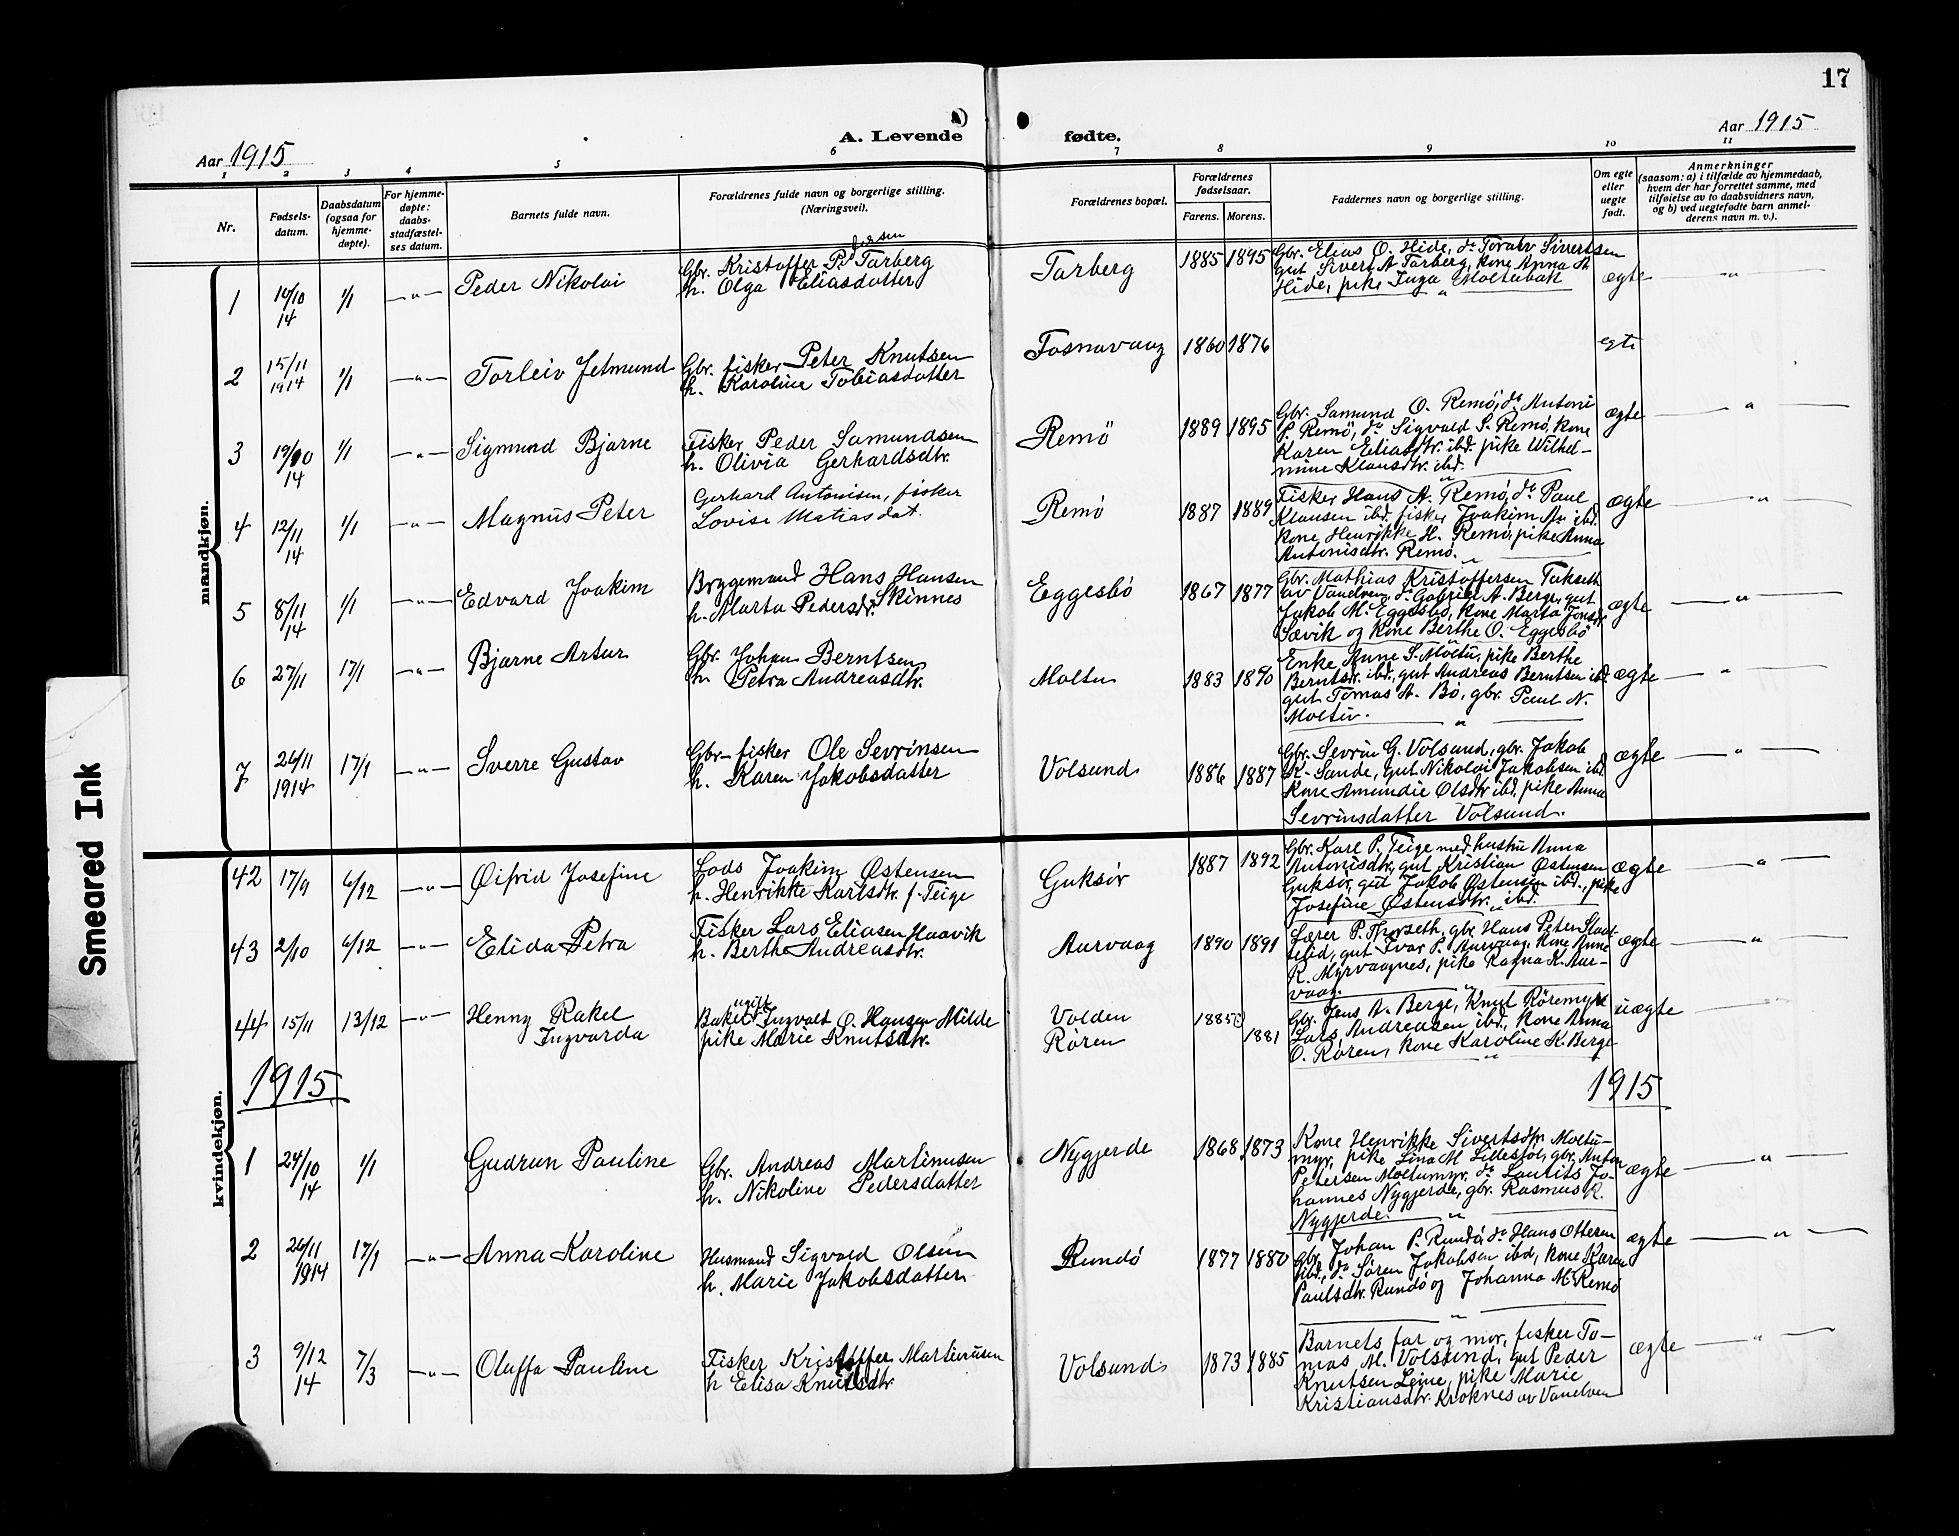 17
A. Levende fødte.
Aar 1915
Aar 1915
1 2 3 4 5 6 7 8 9 10 11
Nr.
Fødsels-
datum.
Daabsdatum
(ogsaa for
hjemme-
døpte).
For hjemme-
døpte:
daabs-
stadfæstel-
ses datum.
Barnets fulde navn.
Forældrenes fulde navn og borgerlige stilling.
(Næringsvei).
Forældrenes bopæl.
Forældrenes
fødselsaar.
Farens. Morens.
Faddernes navn og borgerlige stilling.
Om egte
eller
uegte
født.
Anmerkninger
(saasom: a) i tilfælde av hjemmedaab,
hvem der har forrettet samme, med
tilføielse av to daabsvidners navn,
og b) ved uegtefødte barn anmel-
derens navn m. v.).
mandkjøn.
1 14/10 14 1/1 —„— Peder Nikolai
Gbr. Kristoffer Pedersen Tarberg
h. Olga Eliasdatter
Tarberg 1885 1895
Gbr. Elias O. Hide, do Toralv Sivertsen
gut Sivert A Tarberg, kone Anna A
Hide, pike Inga Moltubak
ægte —„—
2 15/11 1914 1/1 —„— Torleiv Jetmund
Gbr. fisker Peter Knutsen
h. Karoline Tobiasdatter
Fosnavaag 1860 1876
egte
3 19/10 14 1/1 —„— Sigmund Bjarne
Fisker Peder Samundsen
h. Olivia Gerhardsdtr.
Remö 1889 1895
Gbr. Samund O. Remö, do Antoni
P. Remö, do Sigvald S. Remø, kone
Karen Eliasdtr. ibd. pike Wilhel-
mine Klausdtr. ibd.
ægte —„—
4 12/11 14 1/1 —„— Magnus Peter
Gerhard Antonisen, fisker
Lovise Matiasdat.
Remø 1887 1889
Fisker Hans A. Remø, do Paul
Klausen ibd. fisker Joakim An ibd.
kone Henrikke H. Remø, pike Anna
Antonisdtr. Remø.
ægte —„—
5 8/11 14 1/1 —„— Edvard Joakim
Bryggemand Hans Hansen
h. Marta Pedersdtr. Skinnes
Eggesbö 1867 1877
Gbr. Mathias Kristoffersen Takseth
av Vanelven, do Gabriel A. Berge, gut
Jakob M. Eggesbö, kone Marta Jonsdr.
Sævik og kone Berthe O. Eggesbö
ægte —„—
6 27/11 17/1 —„— Bjarne Artur
Gbr. Johan Berntsen
h. Petra Andreasdtr.
Moltu 1883 1890
Enke Anne S. Moltu, pike Berthe
Berntsdr. ibd., gut Andreas Berntsen ibd.
gut Tomas A. Bö, gbr. Paul N.
Moltu.
ægte —„—
7 26/11 1914 17/1 —„— Sverre Gustav
Gbr. fisker Ole Sevrinsen
h. Karen Jakobsdatter
Volsund 1886 1887
Gbr. Sevrin G. Volsund, gbr. Jakob
K. Sande, gut Nikolai Jakobsen ibd.
kone Amundie Olsdtr ibd. pike Anna
Sevrinsdatter Volsund.
ægte —„—
kvindekjøn.
42 17/9 6/12 —„— Øifrid Josefine
Lods Joakim Østensen
h. Henrikke Karlsdtr. f. Teige
Guksör 1887 1892
Gbr. Karl P. Teige med hustru Anna
Antonisdtr., gut Kristian Østensen
Guksör, gut Jakob Østensen ibd., pike
Josefine Østensdtr. ibd.
ægte —„—
43 2/10 6/12 —„— Elida Petra
Fisker Lars Eliasen Haavik
h. Berthe Andreasdtr.
Aurvaag 1890 1891
Lærer P. Thorseth, gbr. Hans Peter
gut Ivar P. Aurvaag, kone Anne
R. Myrvaagnes, pike Ragna K. Aur-
vaag.
ægte —„—
44 15/11 13/12 —„— Henny Rakel
Ingvarda
ugift
Baker Ingvald O. Hansen Milde
pike Marie Knutsdtr.
Volden
Røren
1885
1881
Gbr. Jens A. Berge, Knut Röremyr
Lars Andreasen ibd, kone Anna
O. Røren, kone Karoline K. Berge
uægte —„—
1915
1915
1 24/10 14 1/1 Gudrun Pauline
Gbr. Andreas Martinusen
h. Nikoline Pedersdatter
Nygjerde 1868 1873
Kone Henrikke Sivertsdtr Moltu-
myr, pike Lina M. Lidesföl, gbr. Anton
Petersen Moltumyr, do Laurits Jo-
hannes Nygjerde, gbr. Rasmus R.
Nygjerde.
ægte —„—
2 26/11 1914 17/1 —„— Anna Karoline
Husmand Sigvald Olsen
h. Marie Jakobsdatter
Rundö 1877 1880
Gbr. Johan P. Rundö, do Hans Otteren
ibd., do Søren Jakobsen ibd, kone Karen
Paulsdtr. Rundö og Johanna M. Remö
ægte —„—
3 9/12 14 7/3 —„— Oluffa Pauline
Fisker Kristoffer Martinusen
h Elisa Knutsdtr.
Volsund 1873 1885
Barnets far og mor, fisker To-
mas M. Volsund, gut Peder
Knutsen Leine, pike Marie
Kristiansdtr. Kroknes av Vanelven
ægte —„—
Smeared Ink